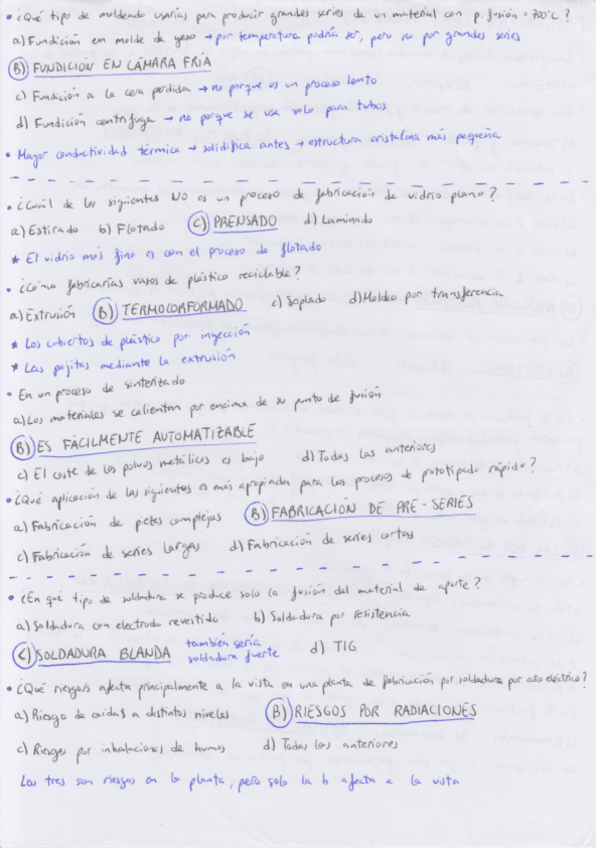 • ¿Qué tipo de moldeado usarías para producir grandes series de un material con p. fusión = 700°C?
a) Fundición en molde de yeso → por temperatura podría ser, pero no por grandes series
B) FUNDICIÓN EN CÁMARA FRÍA
c) Fundición a la cera perdida → no porque es un proceso lento
d) Fundición centrífuga → no porque se usa solo para tubos
• Mayor conductividad térmica → solidifica antes → estructura cristalina más pequeña
• ¿Cuál de los siguientes NO es un proceso de fabricación de vidrio plano?
a) Estirado b) Flotado C) PRENSADO d) Laminado
* El vidrio más fino es con el proceso de flotado
• ¿Cómo fabricarías vasos de plástico reciclable?
a) Extrusión B) TERMOCORFORMADO c) Soplado d) Moldeo por transferencia
* Los cubiertos de plástico por inyección
* Las pajitas mediante la extrusión
• En un proceso de sinterizado
a) Los materiales se calientan por encima de su punto de fusión
B) ES FÁCILMENTE AUTOMATIZABLE
c) El coste de los polvos metálicos es bajo d) Todas las anteriores
• ¿Qué aplicación de las siguientes es más apropiada para los procesos de prototipado rápido?
a) Fabricación de piezas complejas B) FABRICACIÓN DE PRE-SERIES
c) Fabricación de series largas d) Fabricación de series cortas
• ¿En qué tipo de soldadura se produce solo la fusión del material de aporte?
a) Soldadura con electrodo revestido b) Soldadura por resistencia
C) SOLDADURA BLANDA también sería soldadura fuerte d) TIG
• ¿Qué riesgo/s afecta principalmente a la vista en una planta de fabricación por soldadura por arco eléctrico?
a) Riesgo de caídas a distintos niveles B) RIESGOS POR RADIACIONES
c) Riesgos por inhalaciones de humos d) Todas las anteriores
Los tres son riesgos en la planta, pero solo la b afecta a la vista